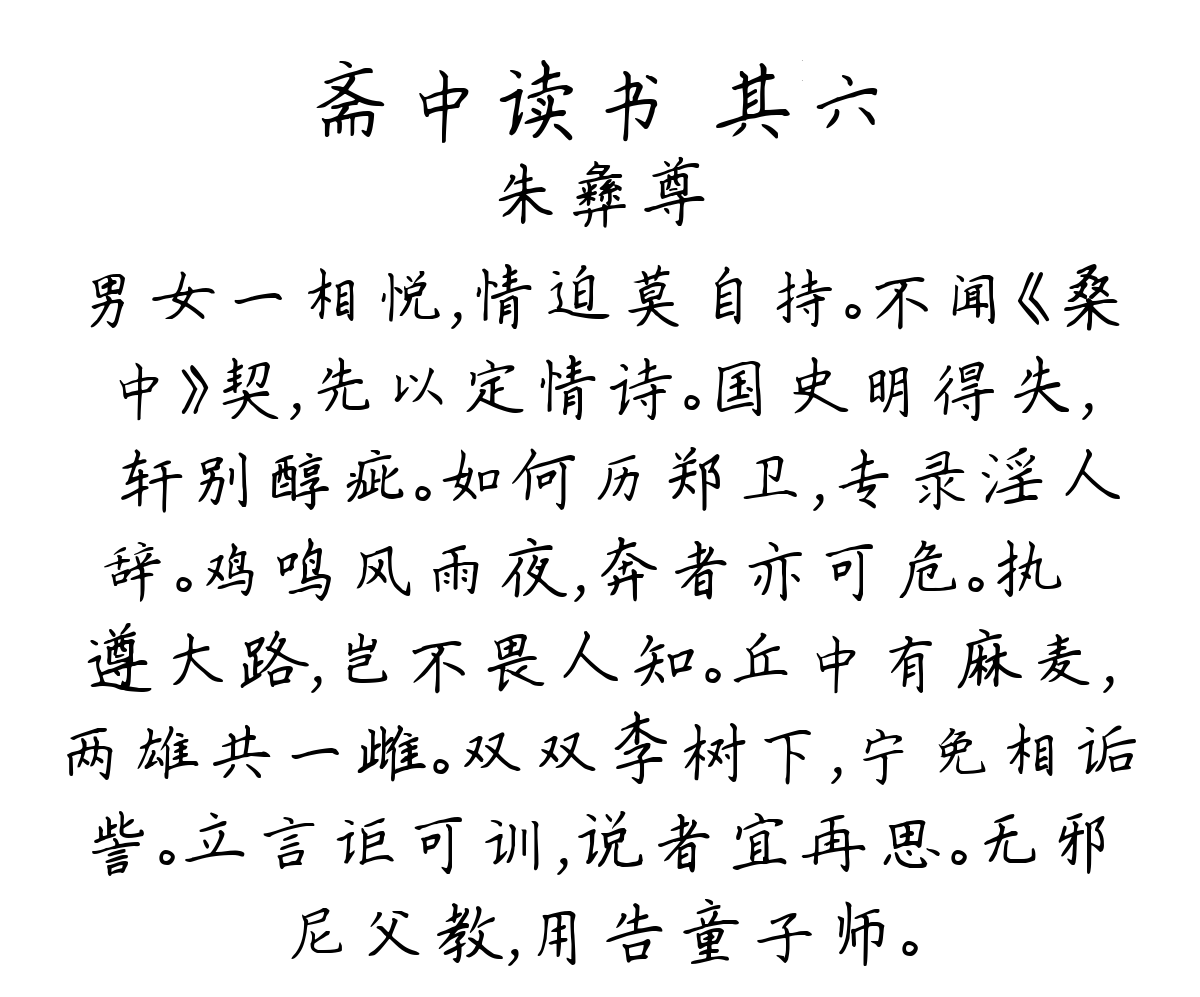 斋中读书 其六
朱彝尊
男女一相悦,情迫莫自持。不闻《桑
中》契,先以定情诗。国史明得失,
轩别醇疵。如何历郑卫,专录淫人
辞。鸡鸣风雨夜,奔者亦可危。执
遵大路,岂不畏人知。丘中有麻麦,
两雄共一雌。双双李树下,宁免相诟
訾。立言讵可训,说者宜再思。无邪
尼父教,用告童子师。